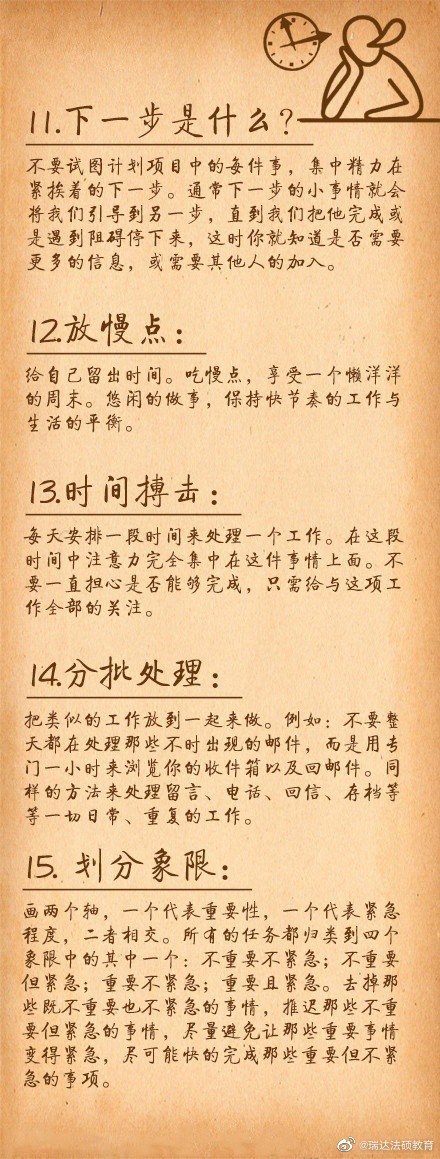 11.下一步是什么？
不要试图计划项目中的每件事，集中精力在
紧挨着的下一步。通常下一步的小事情就会
将我们引导到另一步，直到我们把他完成或
是遇到阻碍停下来，这时你就知道是否需要
更多的信息，或需要其他人的加入。
12.放慢点：
给自己留出时间。吃慢点，享受一个懒洋洋
的周末。悠闲的做事，保持快节奏的工作与
生活的平衡。
13.时间搏击：
每天安排一段时间来处理一个工作。在这段
时间中注意力完全集中在这件事情上面。不
要一直担心是否能够完成，只需给与这项工
作全部的关注。
14.分批处理：
把类似的工作放到一起来做。例如：不要整
天都在处理那些不时出现的邮件，而是用专
门一小时来浏览你的收件箱以及回邮件。同
样的方法来处理留言、电话、回信、存档等
等一切日常、重复的工作。
15. 划分象限：
画两个轴，一个代表重要性，一个代表紧急
程度，二者相交。所有的任务都归类到四个
象限中的其中一个：不重要不紧急；不重要
但紧急；重要不紧急；重要且紧急。去掉那
些既不重要也不紧急的事情，推迟那些不重
要但紧急的事情，尽量避免让那些重要事情
变得紧急，尽可能快的完成那些重要但不紧
急的事项。
@瑞达法硕教育